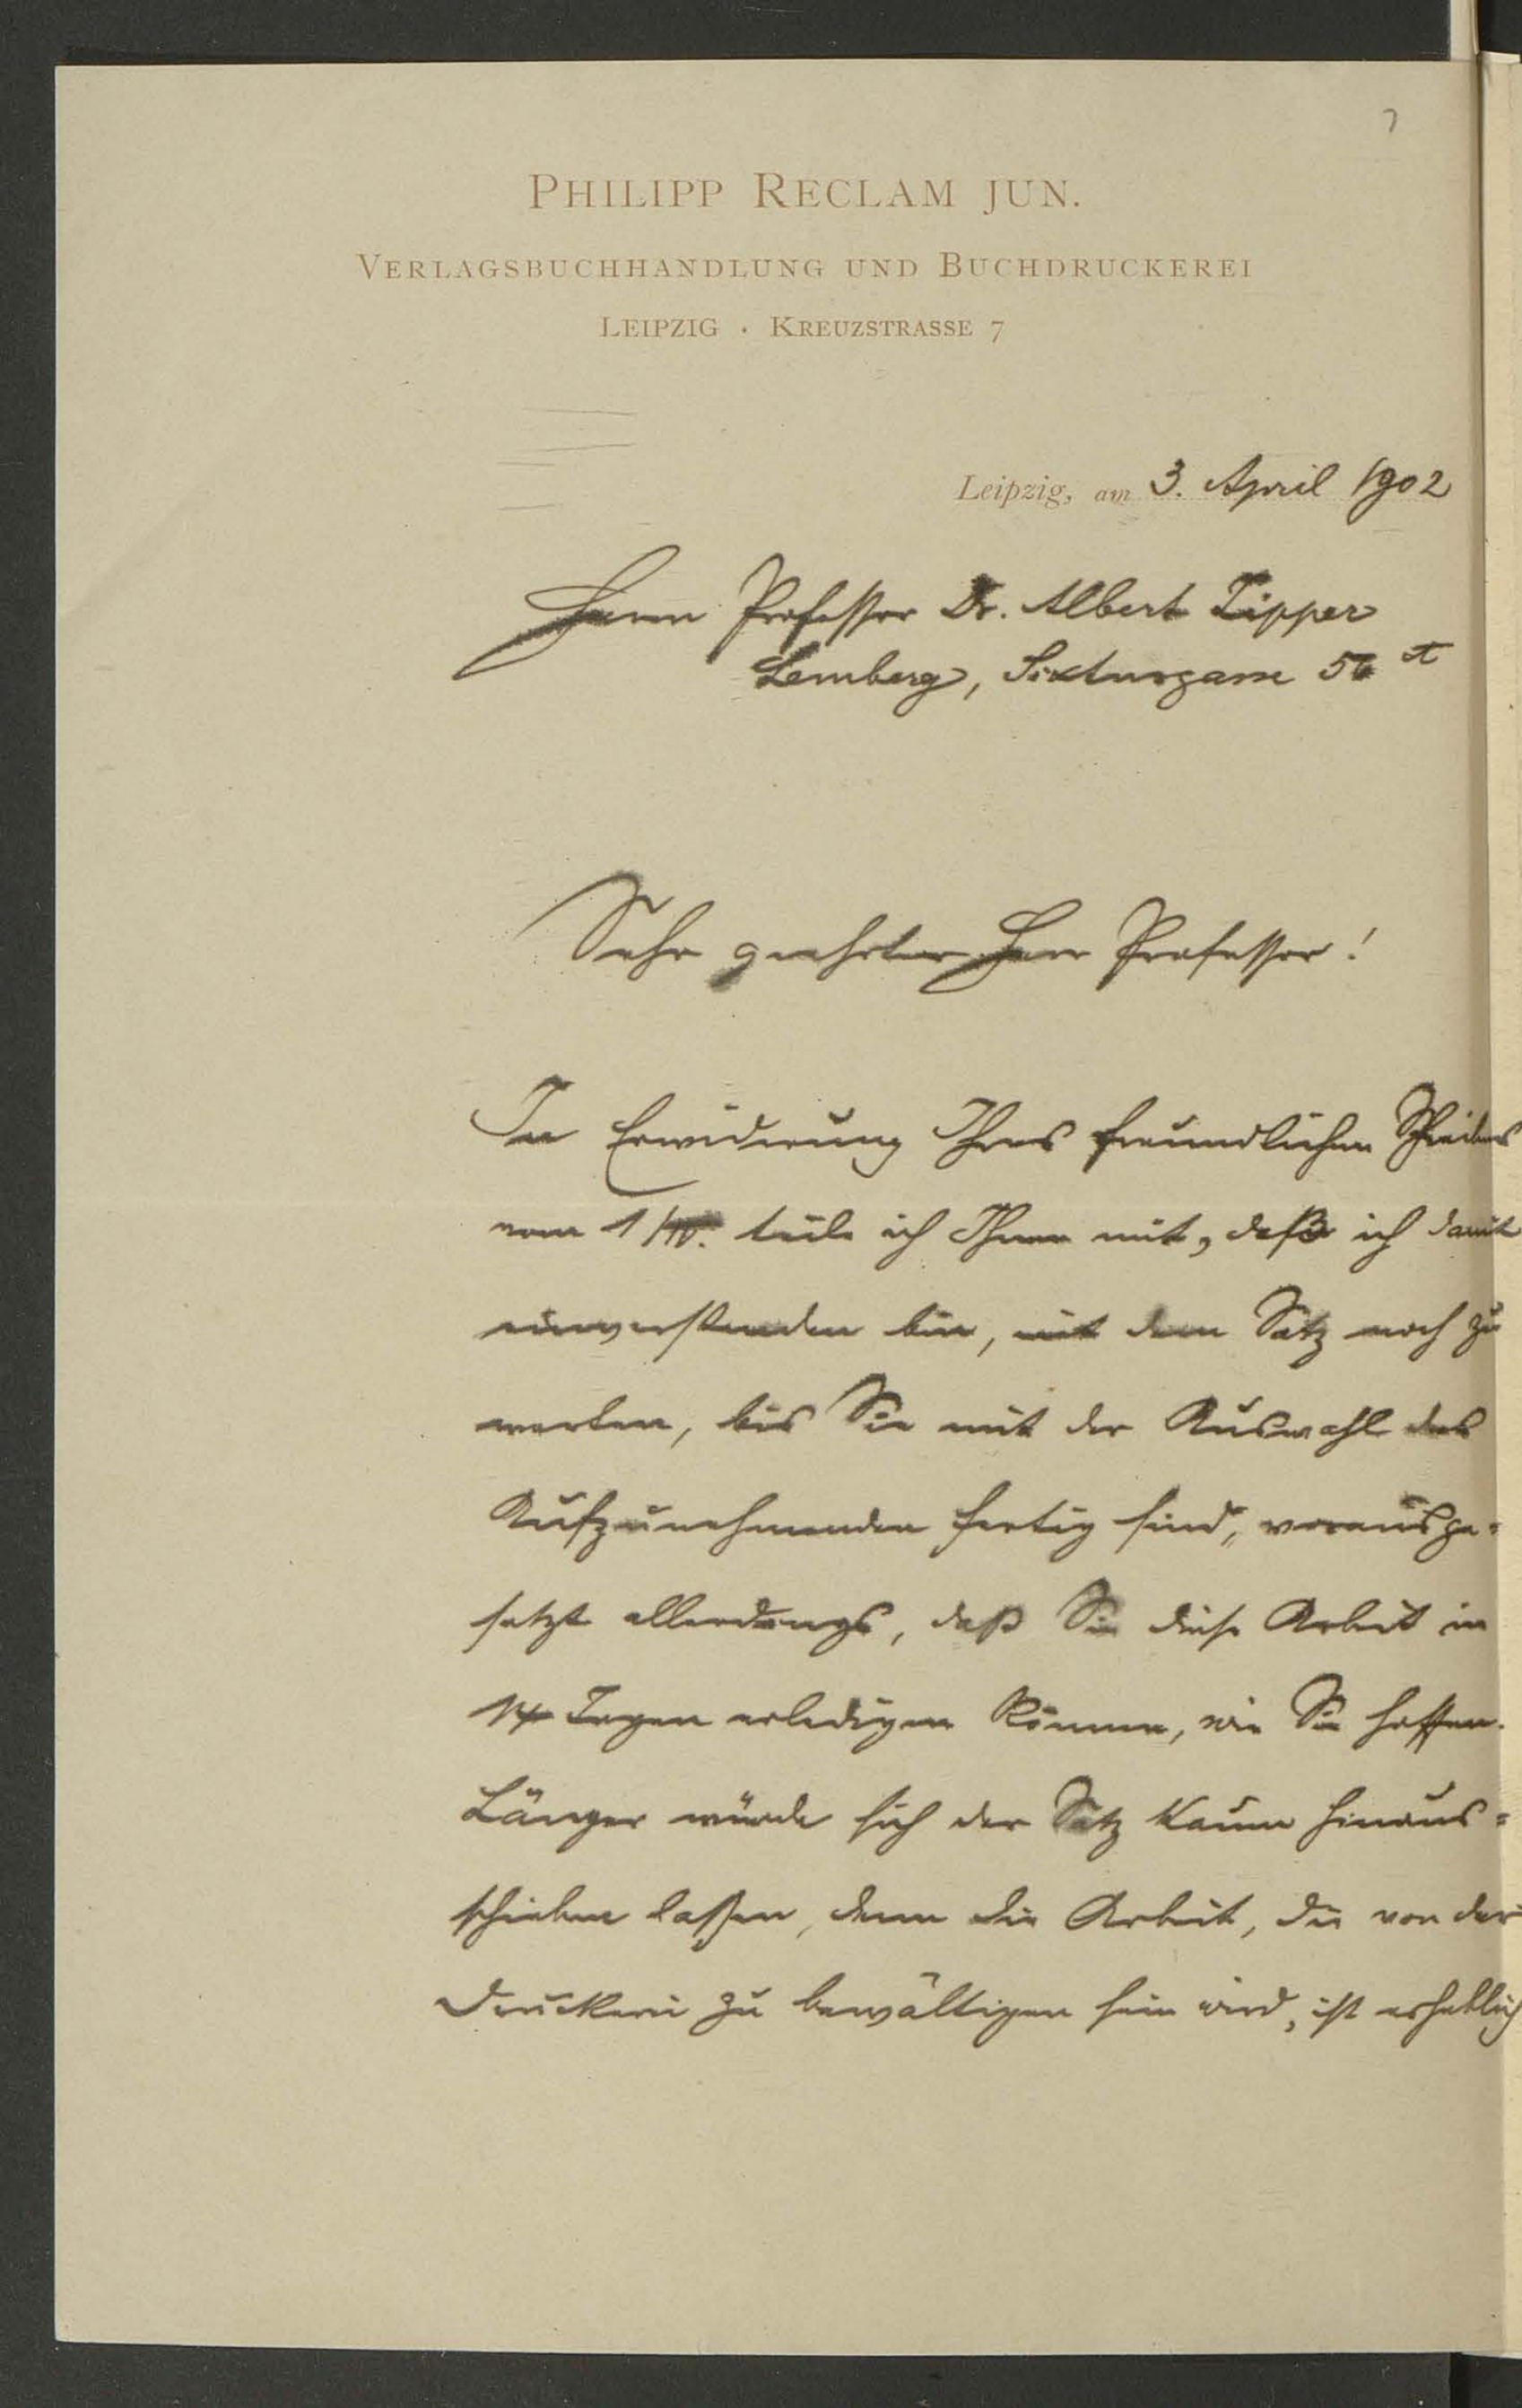 7
PHILIPP RECLAM JUN.
VERLAGSBUCHHANDLUNG UND BUCHDRUCKEREI
LEIPZIG · KREUZSTRASSE 7
Leipzig, am 3. April 1902
Herrn Professor Dr. Albert Zipper
Lemberg, Sixtusgasse 56 A
Sehr geehrter Herr Professor!
In Erwiderung Ihres freundlichen Schreibens
vom 1/IV. teile ich Ihnen mit, daß ich damit
einverstanden bin, mit dem Satz noch zu
warten, bis Sie mit der Auswahl des
Aufzunehmenden fertig sind, vorausge=
setzt allerdings, daß Sie diese Arbeit in
14 Tagen erledigen können, wie Sie hoffen.
Länger würde sich der Satz kaum hinaus=
schieben lassen, denn die Arbeit, die von der
Druckerei zu bewältigen sein wird, ist erheblich